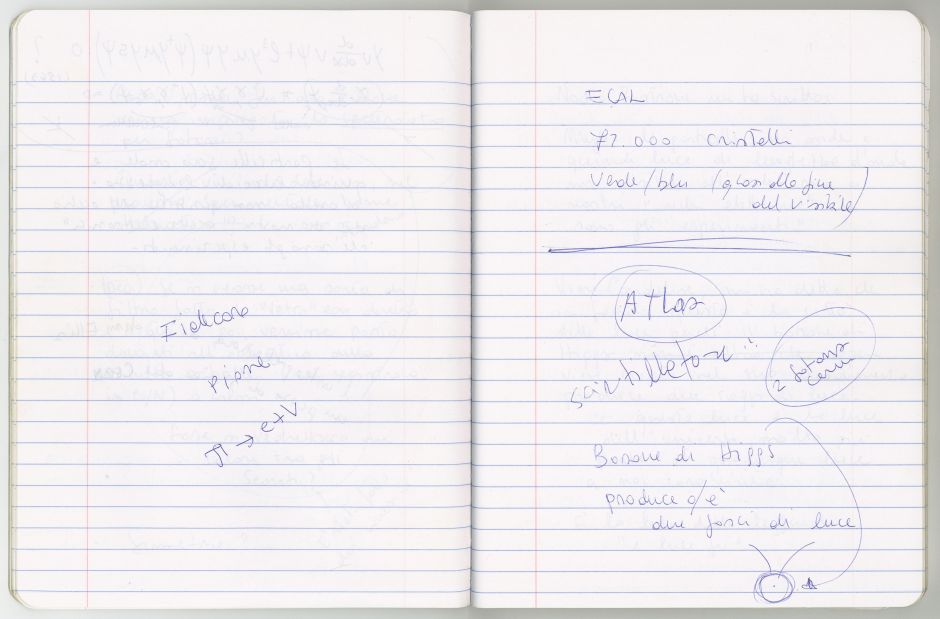 Fidecaro
pione
π → e+ν
ECAL
77.000 cristalli
verde/blu (quasi alla fine
del visibile)
Atlas
scintillatori
2 fotoni
Bosone di Higgs
produce o/è
due fasci di luce